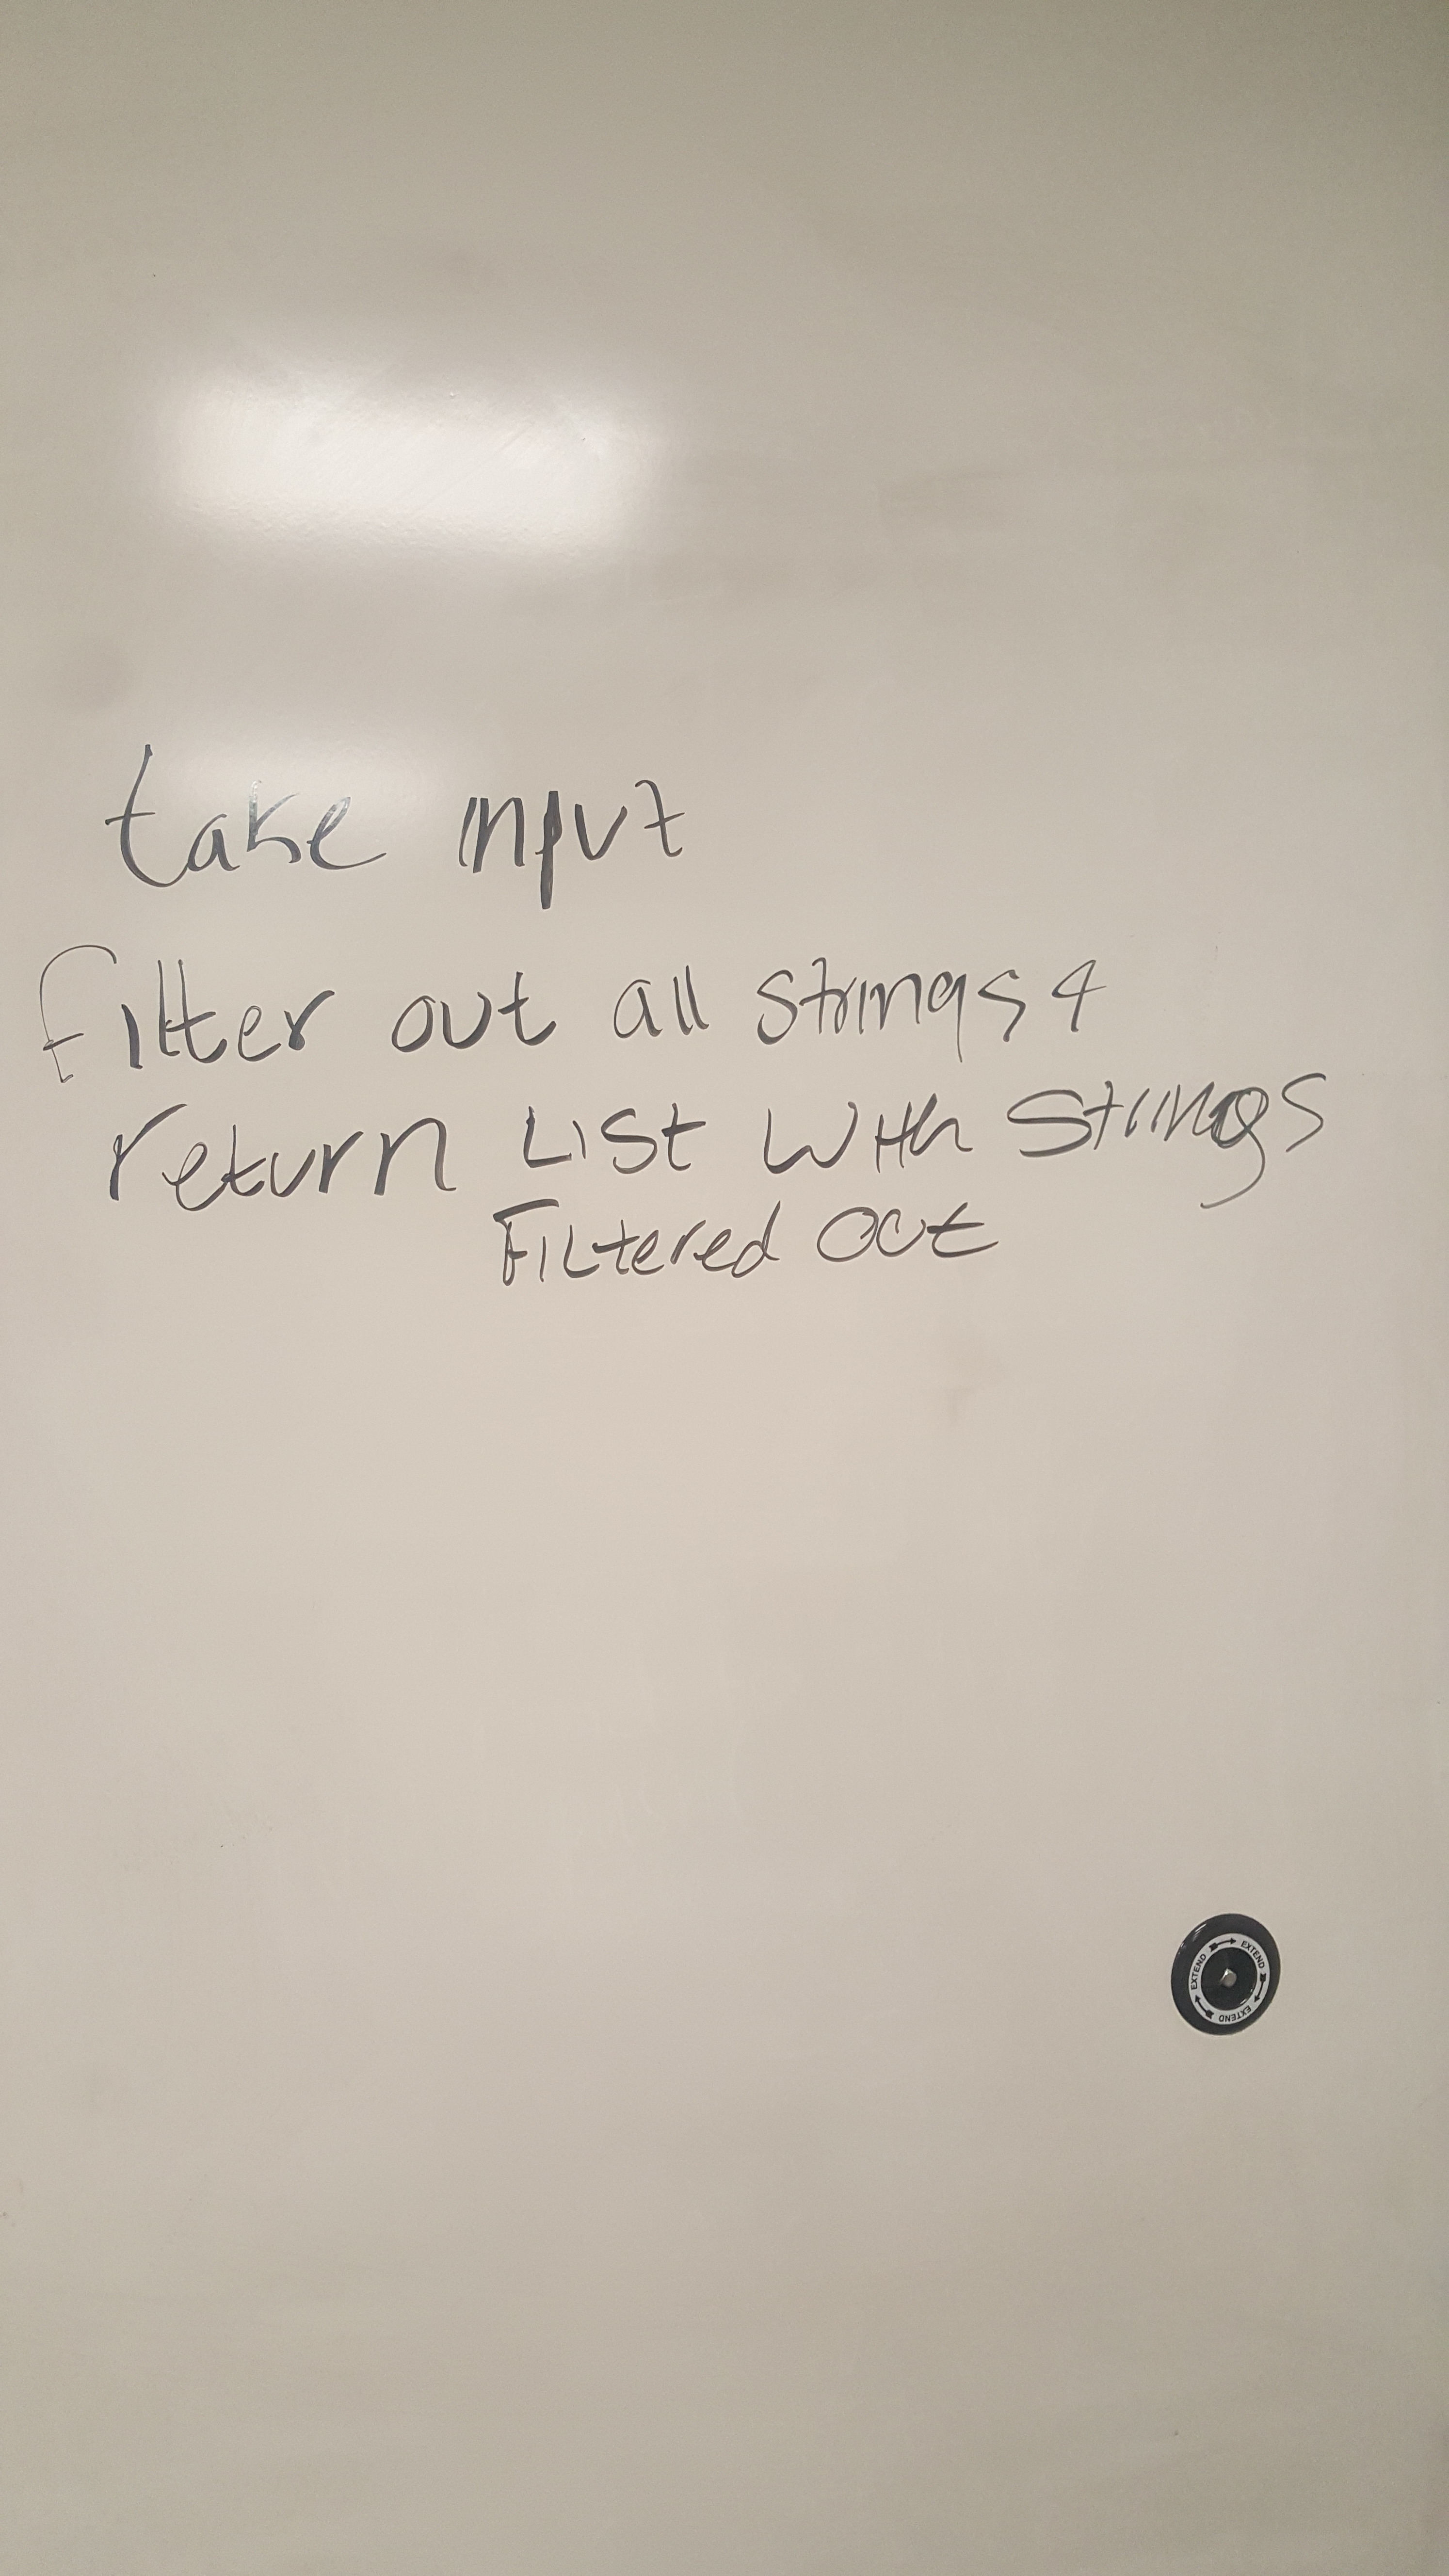 take input
filter out all strings &
return List With Strings
Filtered Out
EXTEND EXTEND EXTEND